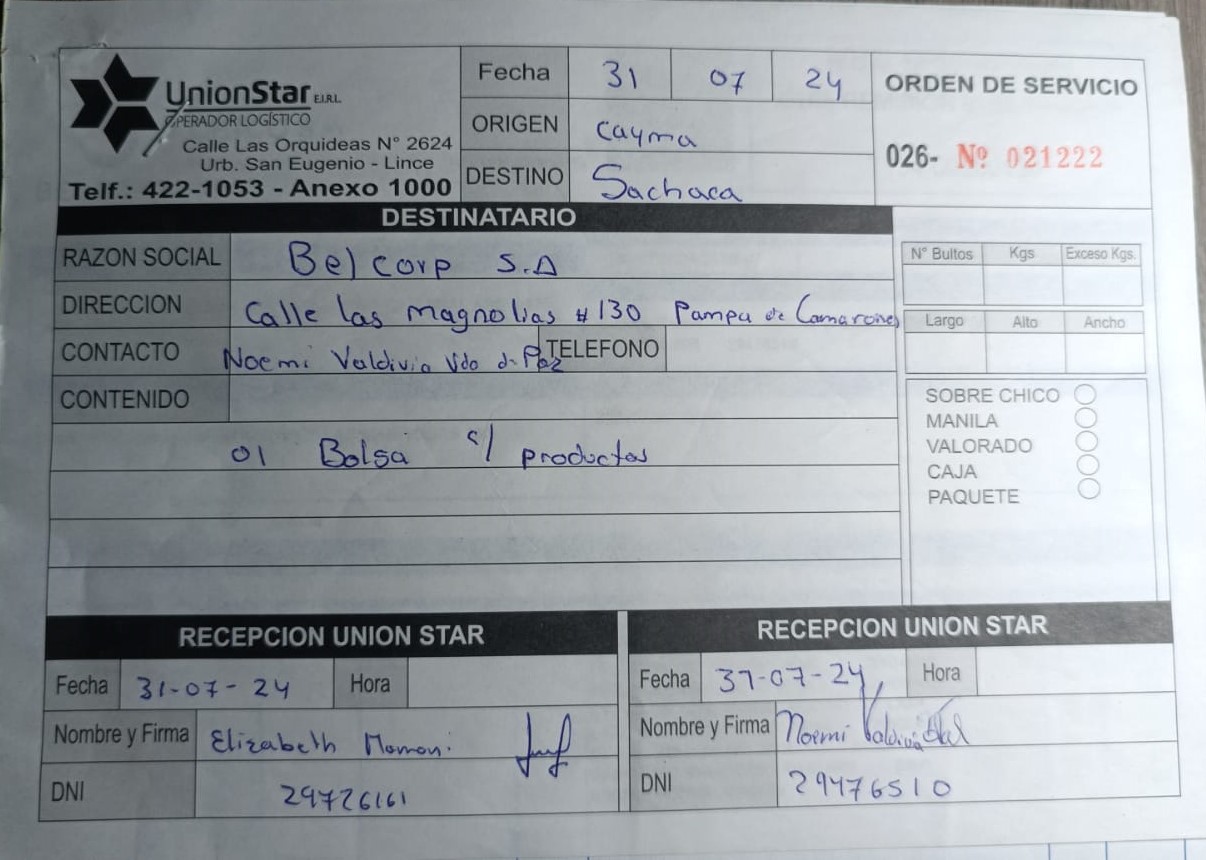 UnionStar E.I.R.L.
OPERADOR LOGÍSTICO
Calle Las Orquideas N° 2624
Urb. San Eugenio - Lince
Telf.: 422-1053 - Anexo 1000
Fecha 31 07 24
ORIGEN Cayma
DESTINO Sachaca
ORDEN DE SERVICIO
026- Nº 021222
DESTINATARIO
RAZON SOCIAL Belcorp S.A
DIRECCION Calle las magnolias #130 Pampa de Camarones
CONTACTO Noemi Valdivia Vda de Paz TELEFONO
CONTENIDO
01 Bolsa c/ productos
N° Bultos Kgs Exceso Kgs.
Largo Alto Ancho
SOBRE CHICO
MANILA
VALORADO
CAJA
PAQUETE
RECEPCION UNION STAR
Fecha 31-07-24 Hora
Nombre y Firma Elizabeth Mamani
DNI 29726161
RECEPCION UNION STAR
Fecha 31-07-24 Hora
Nombre y Firma Noemi Valdivia
DNI 29476510